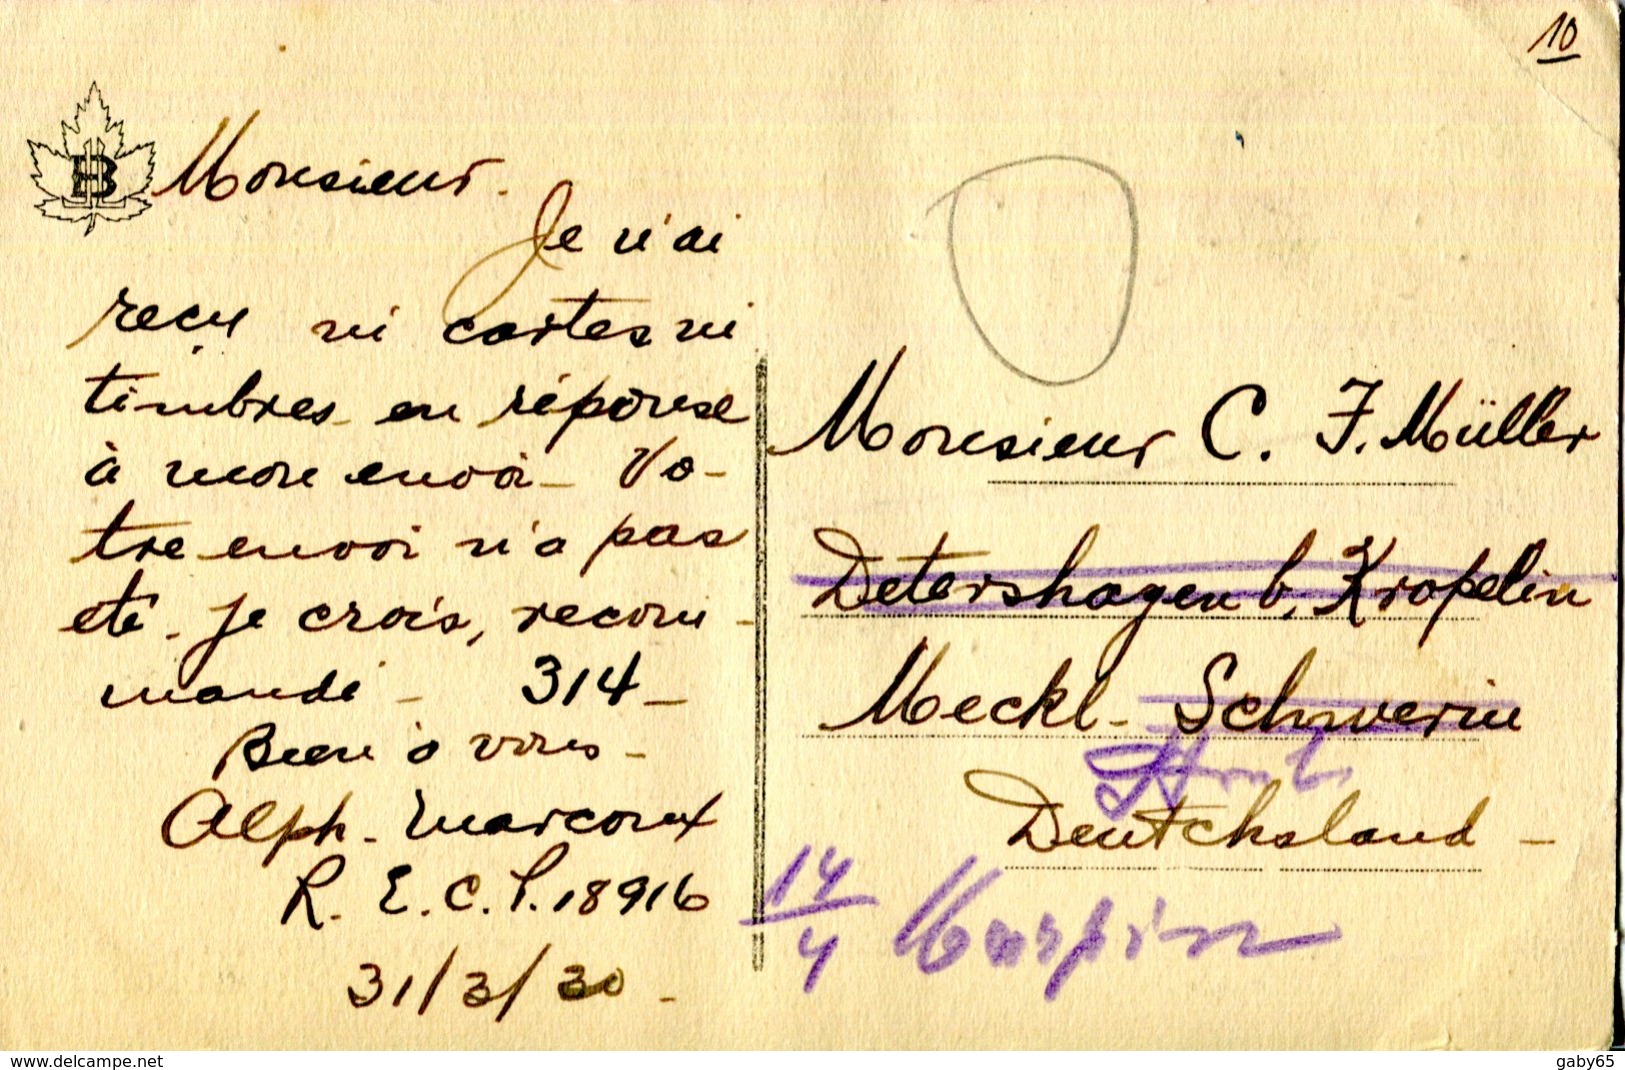 10
Monsieur.
Je n'ai
reçu ni cartes ni
timbres en réponse
à mon envoi - Vo-
tre envoi n'a pas
eté. je crois, recom-
mandé - 314 -
Bien à vous -
Alph. Marcoux
R. E. C. P. 18916
31/3/30 -
Monsieur C. F. Müller
Detershagen b. Kropelin
Meckl. Schwerin
Deutchsland -
14/4
www.delcampe.net
gaby65